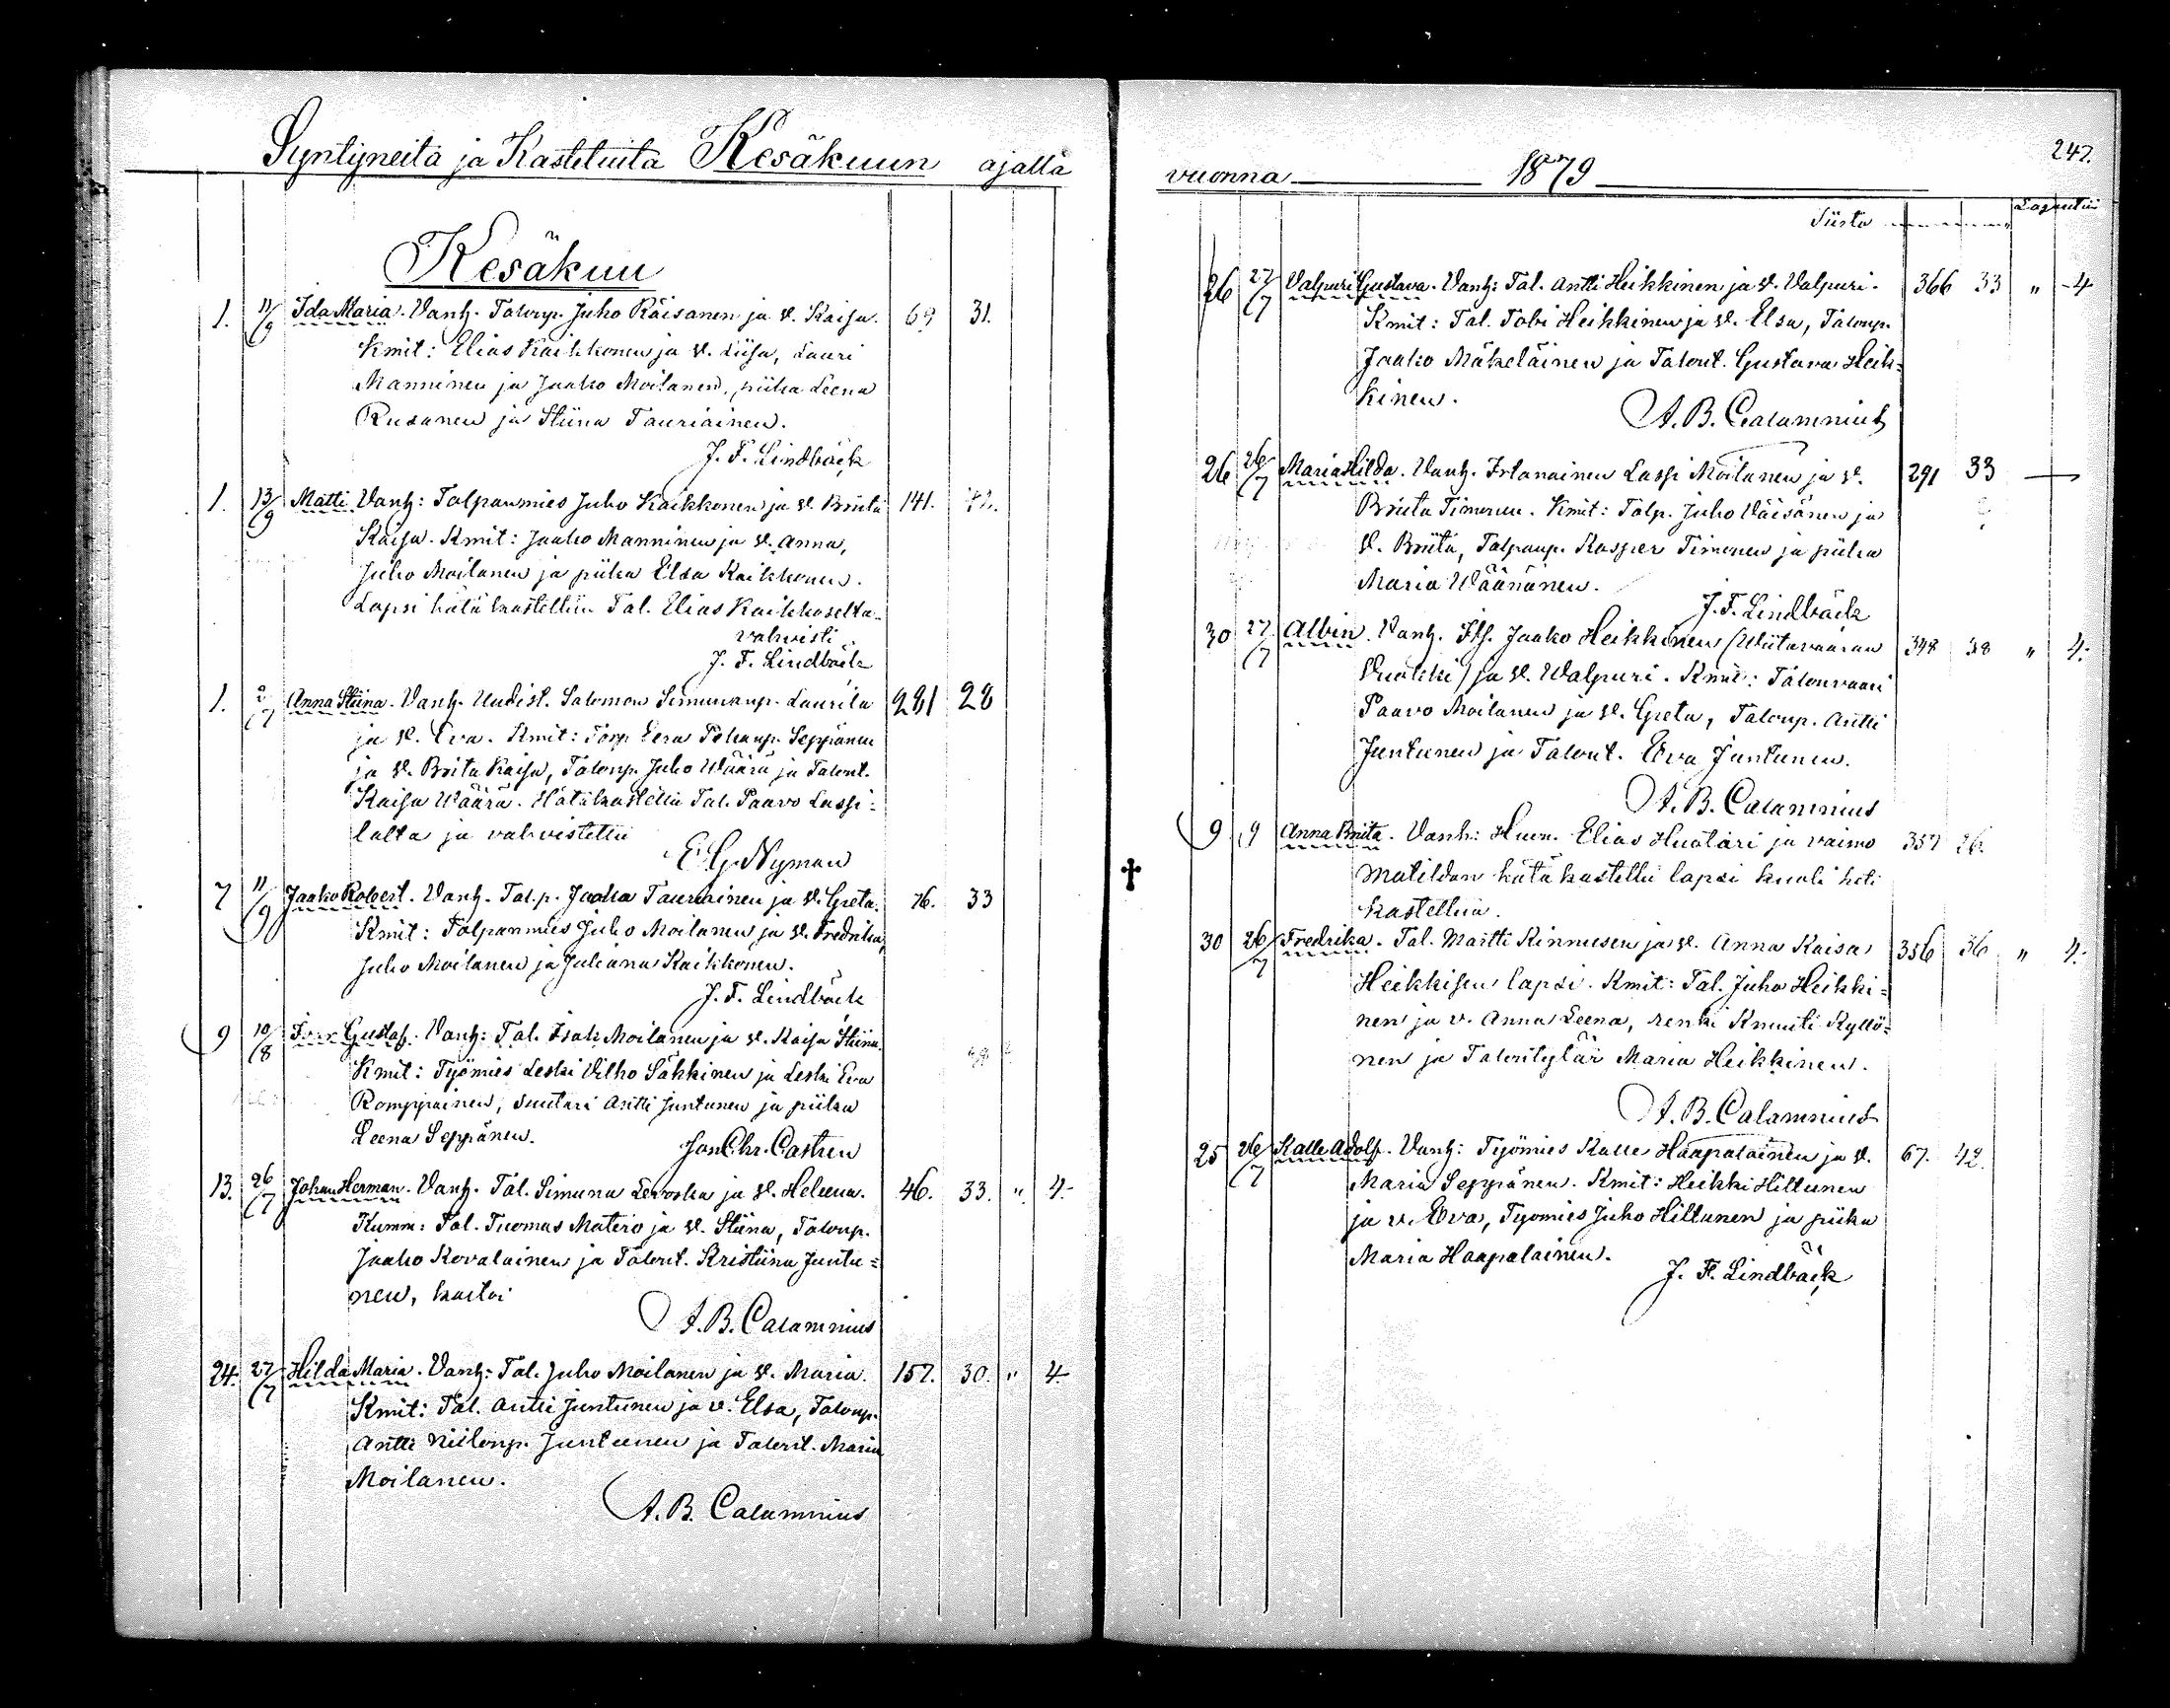 Syntyneitä ja Kastetuita Kesäkuun ajalla
Kesäkuu
1. 11/9 Ida Maria. Vanh. Talonp. Juho Räisänen ja v. Kaisa. 69 31.
Kmit: Elias Kaikkonen ja v. Liisa, Lauri
Manninen ja Jaako Moilanen, piika Leena
Rusanen ja Stiina Tauriainen.
J. F. Lindbäck
1. 13/9 Matti. Vanh: Talpanmies Juho Kaikkonen ja v. Briita 141.
Kaisa. Kmit: Jaako Manninen ja v. Anna,
Juho Moilanen ja piika Elsa Kaikkonen.
Lapsi hätäkastettiin Tal. Elias Kaikkoselta
vahvisti
J. F. Lindbäck
1. 2/7 Anna Stiina. Vanh. Uudist. Salomon Simunanp. Laurila 281 28
ja v. Eva. Kmit: Torp Eera Pekanp. Seppänen
ja v. Brita Kaisa, Talonp. Juho Wäärä ja Talont.
Kaisa Wäärä. Hätäkastettiin Tal. Paavo Lassi-
lalta ja vahvistettu
E. G. Nyman
7 11/9 Jaako Robert. Vanh. Tal.p. Jaako Tauriainen ja v. Greta. 76. 33
Kmit: Talpanmies Juho Moilanen ja v. Fredrika,
Juho Moilanen ja Juliana Kaikkonen.
J. F. Lindbäck
9 10/8 Gustaf. Vanh: Tal. Isak Moilanen ja v. Kaisa Stiina.
Kmit: Työmies Leski Vilho Säkkinen ja Leski Eva
Romppainen, suutari Antti Juntunen ja piika
Leena Seppänen. Jon Chr. Castren
13. 26/7 Johan Herman. Vanh. Tal. Simuna Levoska ja v. Heleena. 46. 33. " 4.
Kumm: Tal. Tuomas Matero ja v. Stiina, Talonp.
Jaako Kovalainen ja Talont. Kristiina Juntu=
nen, kastoi
A. B. Calamnius
24. 27/7 Hilda Maria. Vanh: Tal. Juho Moilanen ja v. Maria. 157. 30. " 4.
Kmit: Tal. Antti Juntunen ja v. Elsa, Talonp.
Antti Niilonp. Juntunen ja Talont. Maria
Moilanen.
A. B. Calamnius
vuonna 1879 247.
Siirto
26 27/7 Valpuri Gustava. Vanh: Tal. Antti Heikkinen ja v. Valpuri. 366 33 " 4
Kmit: Tal. Tobi Heikkinen ja v. Elsa, Talonp.
Jaako Mäkeläinen ja Talont. Gustava Heik=
kinen.
A. B. Calamnius
26 26/7 Maria Hilda. Vanh. Irtanainen Lassi Moilanen ja v. 291 33
Briita Timonen. Kmit: Talp. Juho Väisänen ja
v. Briita, Talpanp. Kasper Timonen ja piika
Maria Wäänänen.
J. F. Lindbäck
30 27/7 Albin. Vanh. Its. Jaako Heikkinen (Wiitavaaran 348 38 " 4.
Vuokki) ja v. Walpuri. Kmit: Talonvaari
Paavo Moilanen ja v. Greta, Talonp. Antti
Juntunen ja Talont. Eva Juntunen.
A. B. Calamnius
9 9 Anna Briita. Vanh: Huon. Elias Huotari ja vaimo 357 26.
Matildan hätäkastettu lapsi kuoli heti
kastettua.
30 26/7 Fredrika. Tal. Martti Kinnusen ja v. Anna Kaisa 356 36 " 4.
Heikkisen lapsi. Kmit: Tal. Juho Heikki=
nen ja v. Anna Leena, renki Knuuti Kyllö=
nen ja Talontytär Maria Heikkinen.
A. B. Calamnius
25 26/7 Kalle Adolf. Vanh: Työmies Kalle Haapalainen ja v. 67. 42.
Maria Seppänen. Kmit: Heikki Hiltunen
ja v. Eva, Työmies Juho Hiltunen ja piika
Maria Haapalainen.
J. F. Lindbäck